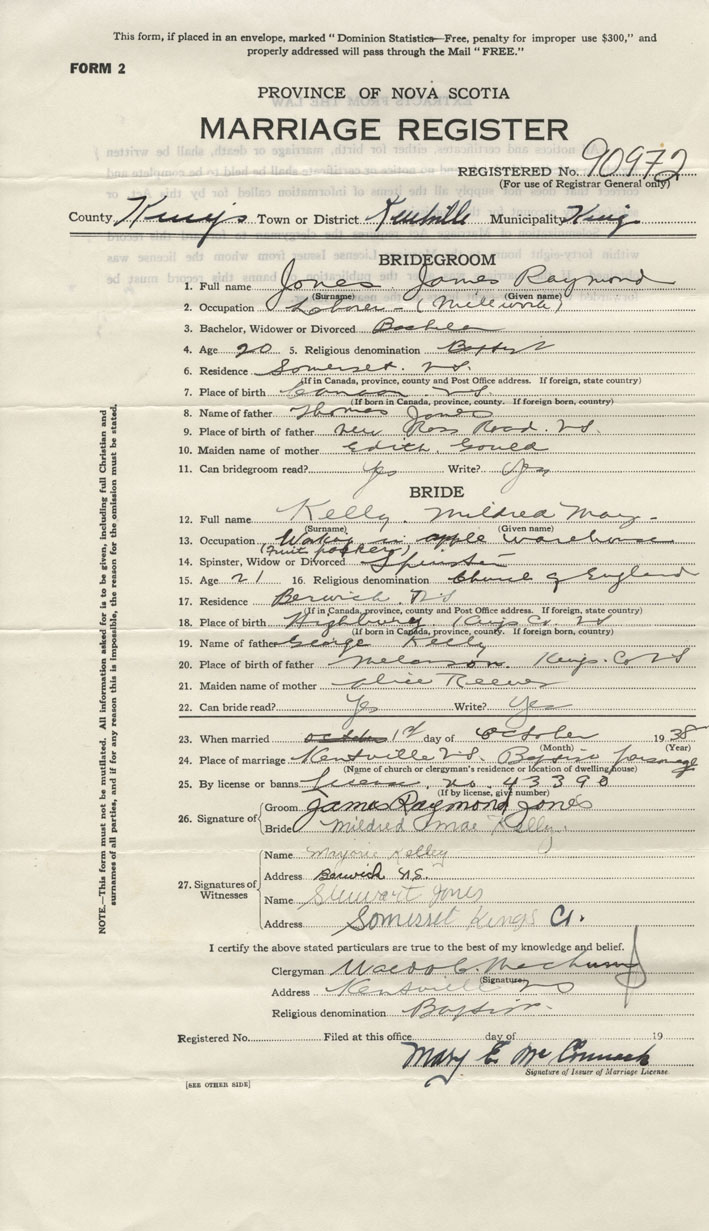 This form, if placed in an envelope, marked "Dominion Statistics—Free, penalty for improper use $300," and
properly addressed will pass through the Mail "FREE."
FORM 2
PROVINCE OF NOVA SCOTIA
MARRIAGE REGISTER
REGISTERED No. 90972
(For use of Registrar General only)
County Kings Town or District Kentville Municipality King
BRIDEGROOM
1. Full name Jones James Raymond
(Surname) (Given name)
2. Occupation Laborer - (Millwork)
3. Bachelor, Widower or Divorced Bachelor
4. Age 20 5. Religious denomination Baptist
6. Residence Somerset. N.S.
(If in Canada, province, county and Post Office address. If foreign, state country)
7. Place of birth N.S.
(If born in Canada, province, county. If foreign born, country)
8. Name of father Thomas Jones
9. Place of birth of father New Ross Road. N.S.
10. Maiden name of mother Edith Gould
11. Can bridegroom read? Yes Write? Yes
BRIDE
12. Full name Kelly. Mildred May-
(Surname) (Given name)
13. Occupation Works in apple warehouse
(Fruit packer)
14. Spinster, Widow or Divorced Spinster
15. Age 21 16. Religious denomination Church of England
17. Residence Berwick. N.S
(If in Canada, province, county and Post Office address. If foreign, state country)
18. Place of birth Highbury. Kings. Co. NS
(If born in Canada, province, county. If foreign born, country)
19. Name of father George Kelly
20. Place of birth of father Melanson. Kings. Co NS
21. Maiden name of mother Alice Reeves
22. Can bride read? Yes Write? Yes
23. When married 1st day of October 1938
(Month) (Year)
24. Place of marriage Kentville N.S. Baptist parsonage
(Name of church or clergyman's residence or location of dwelling house)
25. By license or banns license, no. 43390
(If by license, give number)
26. Signature of Groom James Raymond Jones
Bride Mildred Mae Kelly.
27. Signatures of Witnesses
Name Marjorie Kelley
Address Berwick N.S.
Name Stewart Jones
Address Somerset Kings Co.
I certify the above stated particulars are true to the best of my knowledge and belief.
Clergyman Waldo C. Machum
(Signature)
Address Kentville NS
Religious denomination Baptist.
Registered No. Filed at this office day of 19
Mary E. McCormack
Signature of Issuer of Marriage License.
[SEE OTHER SIDE]
NOTE.—This form must not be mutilated. All information asked for is to be given, including full Christian and
surnames of all parties, and if for any reason this is impossible, the reason for the omission must be stated.